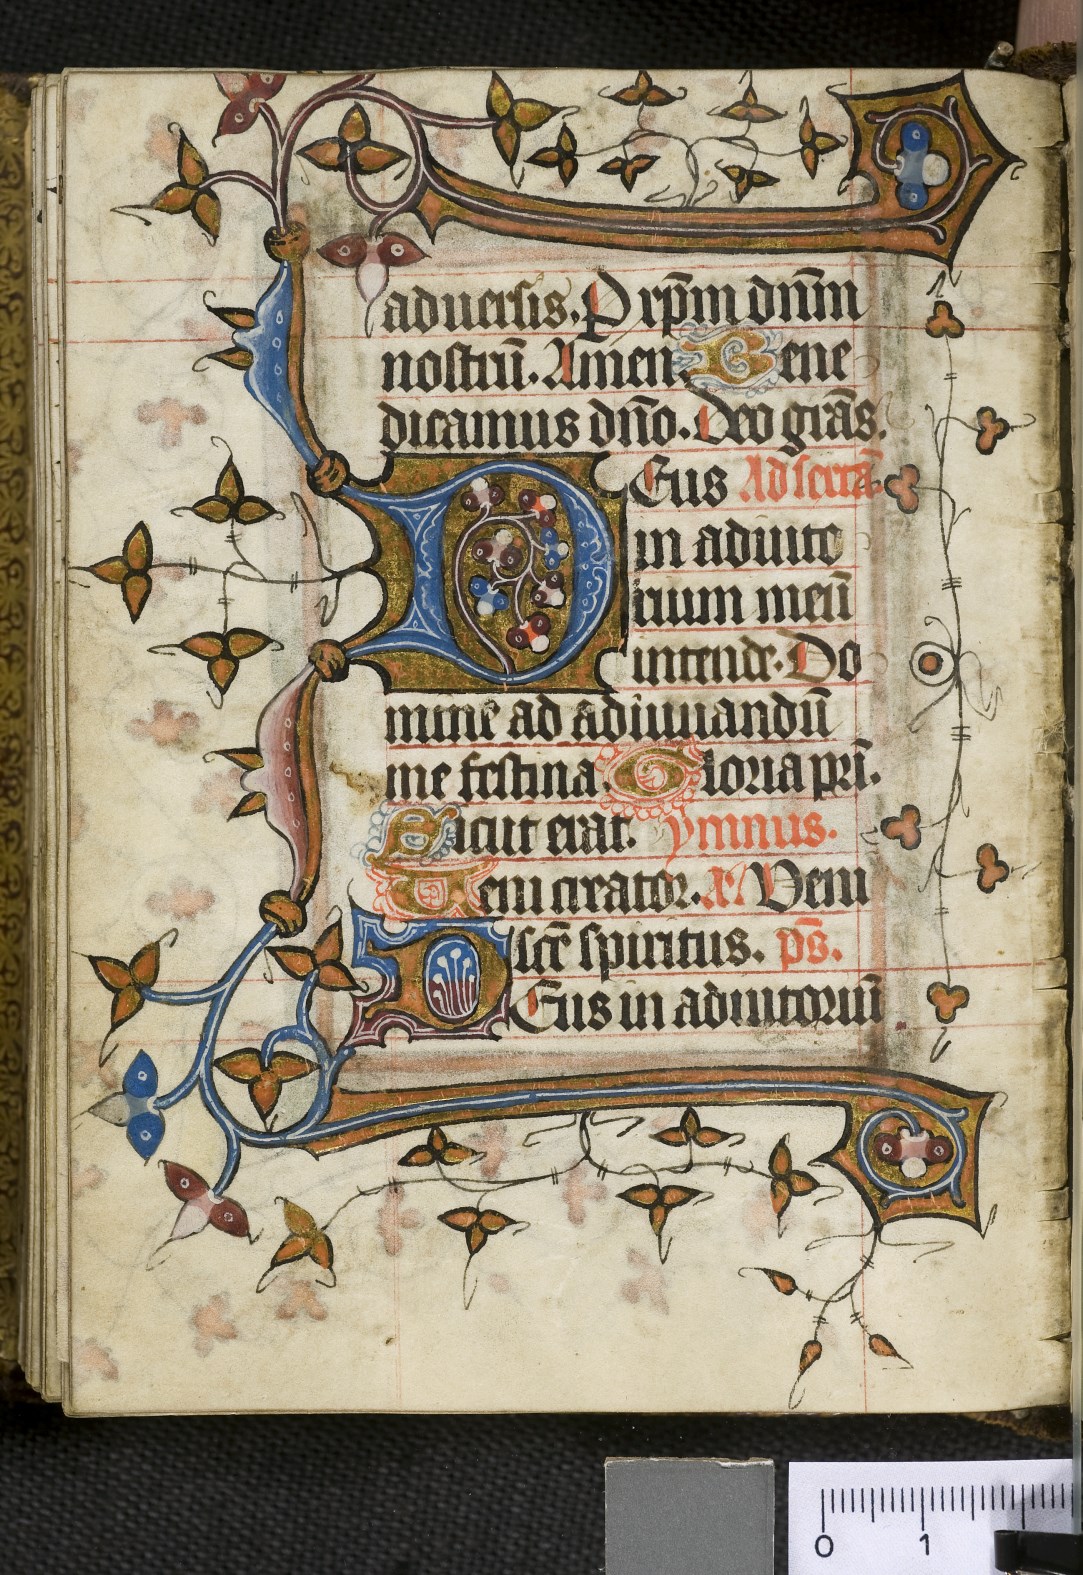 aduersis. P xp̄m dn̄m
nostrū. Amen. Bene
dicamus dn̄o. Deo grās.
Deus Ad sextā
in adiuto
rium meū
intende. Do
mine ad adiuuandū
me festina. Gloria pri.
Sicut erat. ymnus.
Veni creator. Veni
sc̄e spiritus. ps̄.
Deus in adiutoriū
0 1